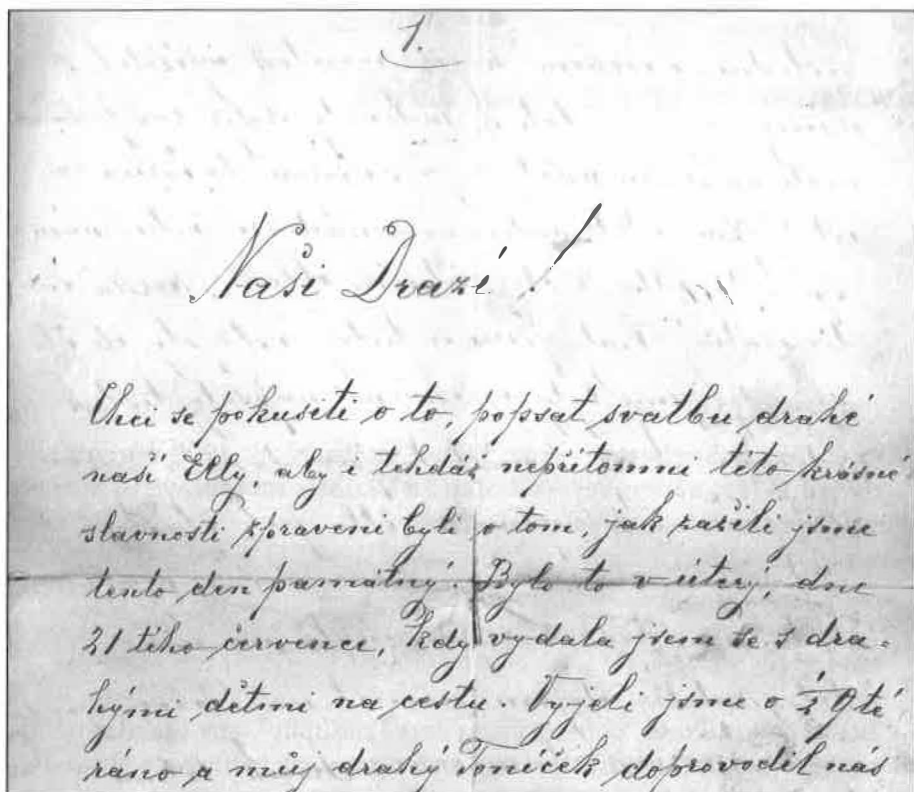 1.
Naši Drazí!
Chci se pokusiti o to, popsat svatbu drahé
naší Elly, aby i tehdáž nepřítomni této krásné
slavnosti zpraveni byli o tom, jak zažili jsme
tento den památný. Bylo to v úterý, dne
21tého července, kdy vydala jsem se s dra-
hými dětmi na cestu. Vyjeli jsme o ½ 9té
ráno a můj drahý Toníček doprovodil nás